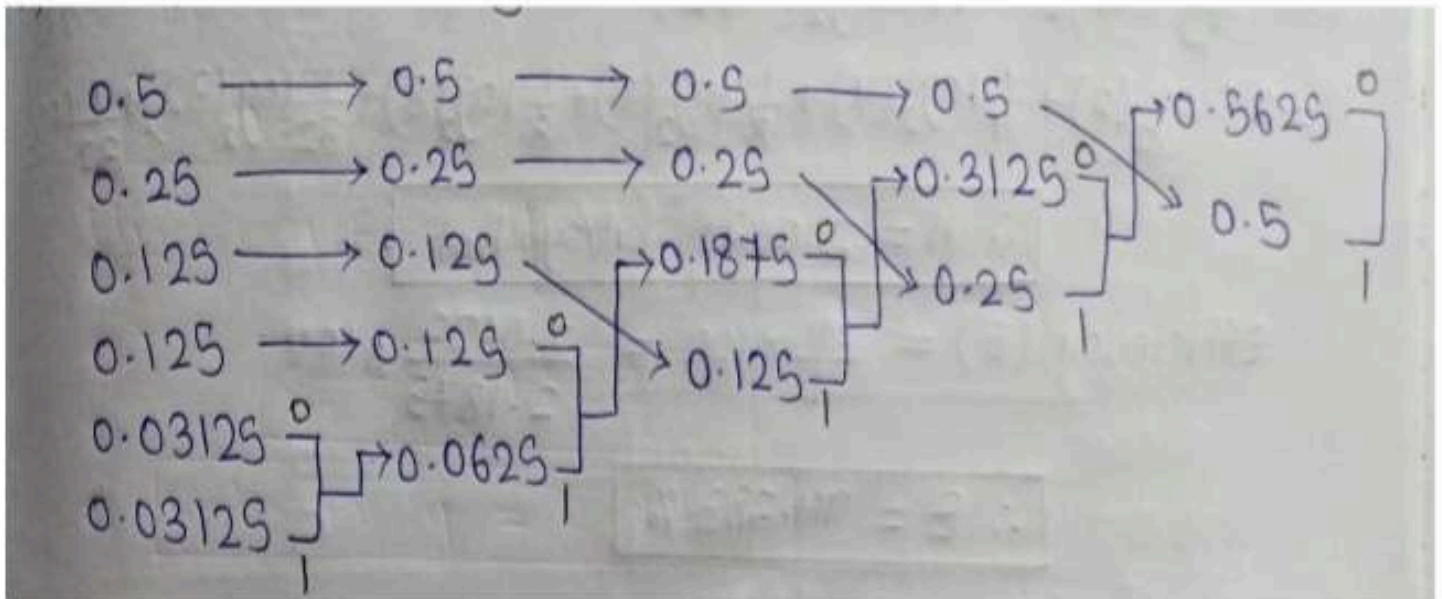 0.5 → 0.5 → 0.5 → 0.5 → 0.5625 0
0.25 → 0.25 → 0.25 → 0.3125 0
0.5 1
0.125 → 0.125 → 0.1875 0
0.25 1
0.125 → 0.125 0
0.125 1
0.03125 0 → 0.0625 1
0.03125 1